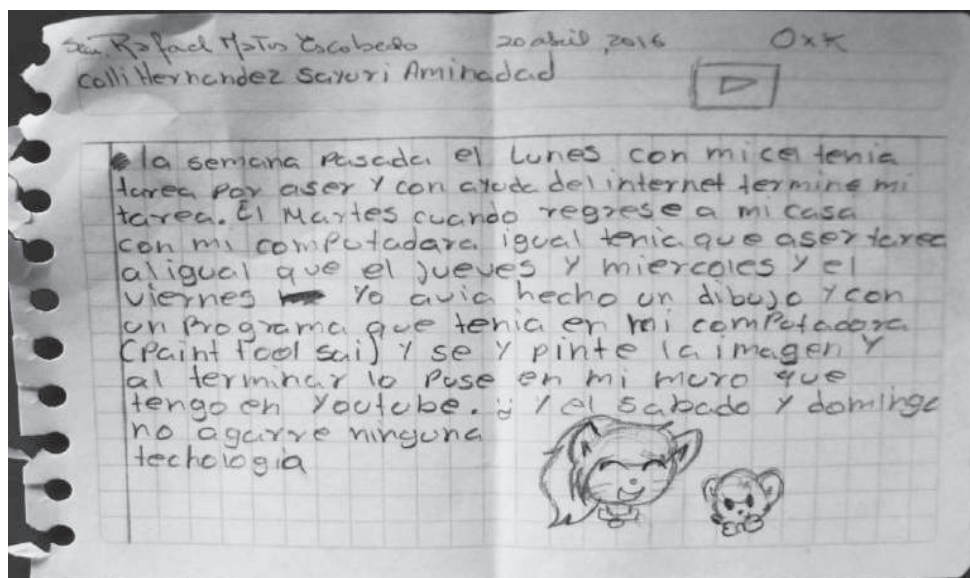 Rafael Matus Escobedo 20 abril, 2016 OxK
Colli Hernandez Sayuri Aminadad
la semana pasada el Lunes con mi cel tenia
tarea por aser y con ayuda del internet termine mi
tarea. El Martes cuando regrese a mi casa
con mi computadara igual tenia que aser tarea
al igual que el jueves y miercoles y el
viernes yo avia hecho un dibujo y con
un Programa que tenia en mi computadora
(Paint tool sai) y se y pinte la imagen y
al terminar lo puse en mi muro que
tengo en Youtube. :) y el sabado y domingo
no agarre ninguna
techologia